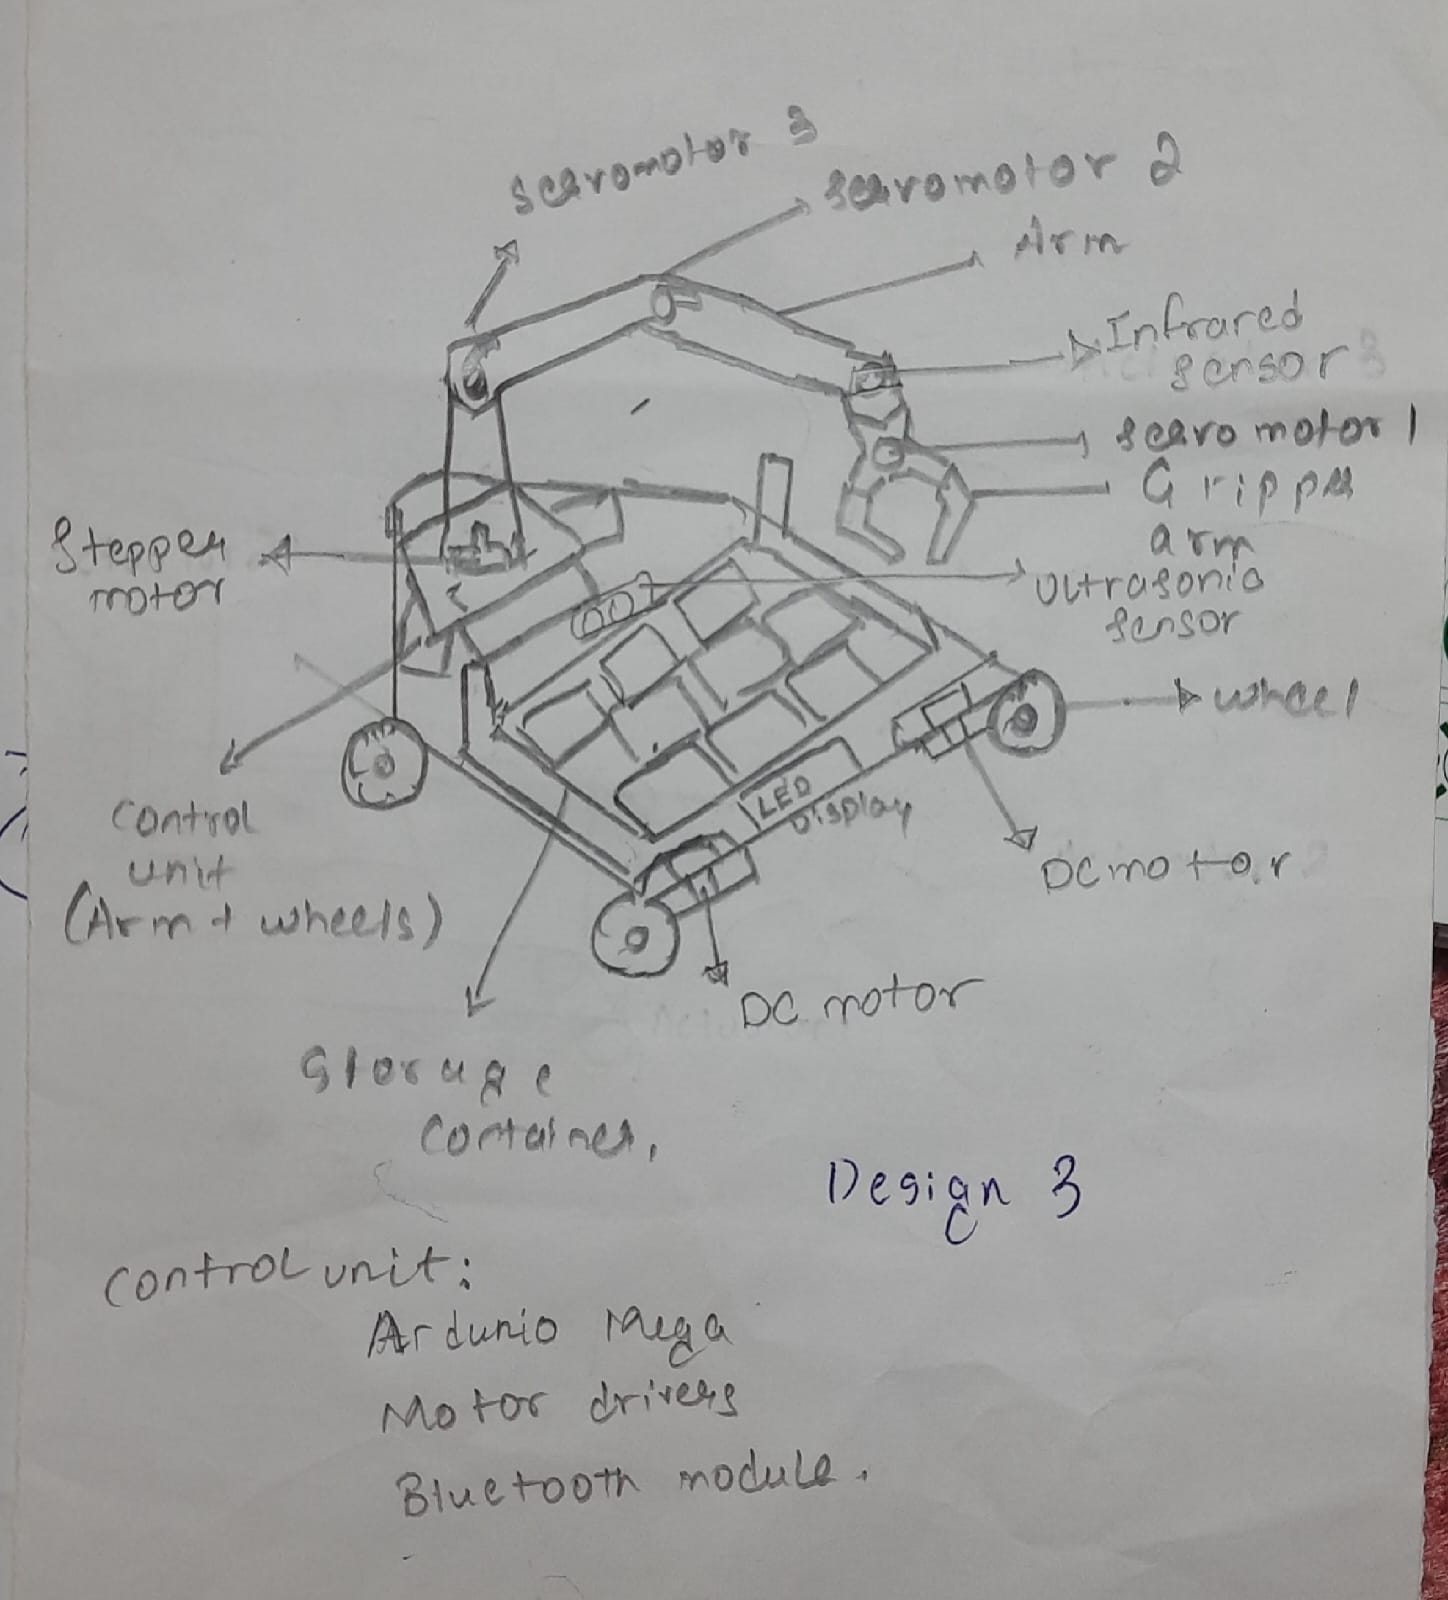 Servomotor 3
Servomotor 2
Arm
Infrared
sensor
Servo motor 1
Gripper
arm
Stepper
motor
Ultrasonic
sensor
wheel
LED
Display
control
unit
(Arm + wheels)
DC motor
DC motor
Storage
Container,
Design 3
control unit:
Ardunio Mega
Motor drivers
Bluetooth module.